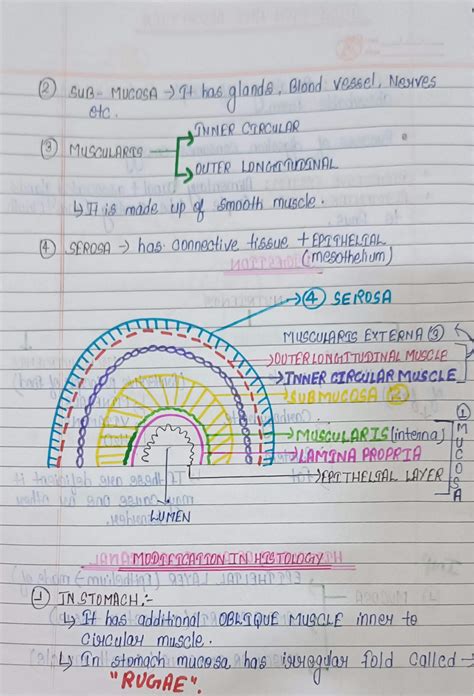 ② SUB-MUCOSA → It has glands, Blood vessel, Nerves
etc.
INNER CIRCULAR
③ MUSCULARIS
OUTER LONGITUDINAL
↳ It is made up of smooth muscle.
④ SEROSA → has connective tissue + EPITHELIAL
(mesothelium)
→④ SEROSA
MUSCULARIS EXTERNA (3)
→OUTER LONGITUDINAL MUSCLE
→INNER CIRCULAR MUSCLE
SUBMUCOSA (2)
→MUSCULARIS (interna)
→LAMINA PROPRIA
→EPITHELIAL LAYER
① MUCOSA
LUMEN
MODIFICATION IN HISTOLOGY
① IN STOMACH:-
↳ It has additional OBLIQUE MUSCLE inner to
circular muscle.
↳ In stomach mucosa has irregular fold called →
"RUGAE".